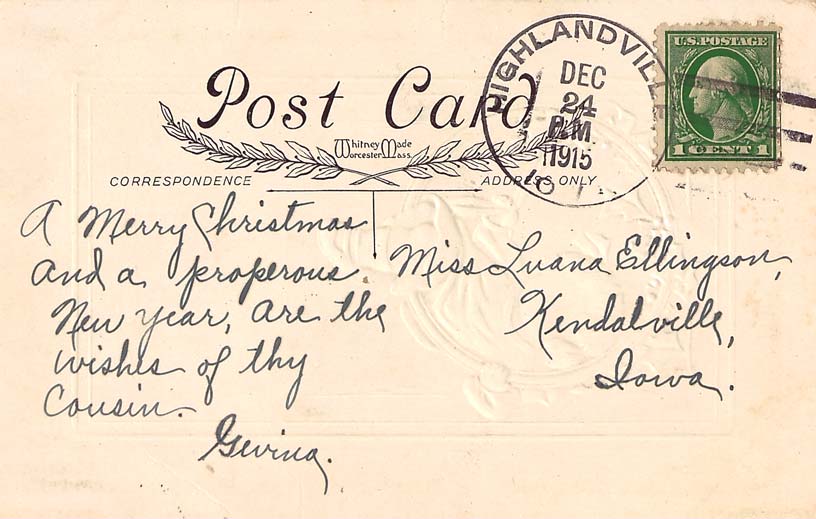 HIGHLANDVILLE
DEC
24
P.M
1915
U.S. POSTAGE
1 CENT 1
Post Card
Whitney Made
Worcester, Mass.
CORRESPONDENCE
ADDRESS ONLY
A Merry Christmas
and a properous
New year, are the
wishes of thy
Cousin.
Miss Luana Ellingson,
Kendalville,
Iowa.